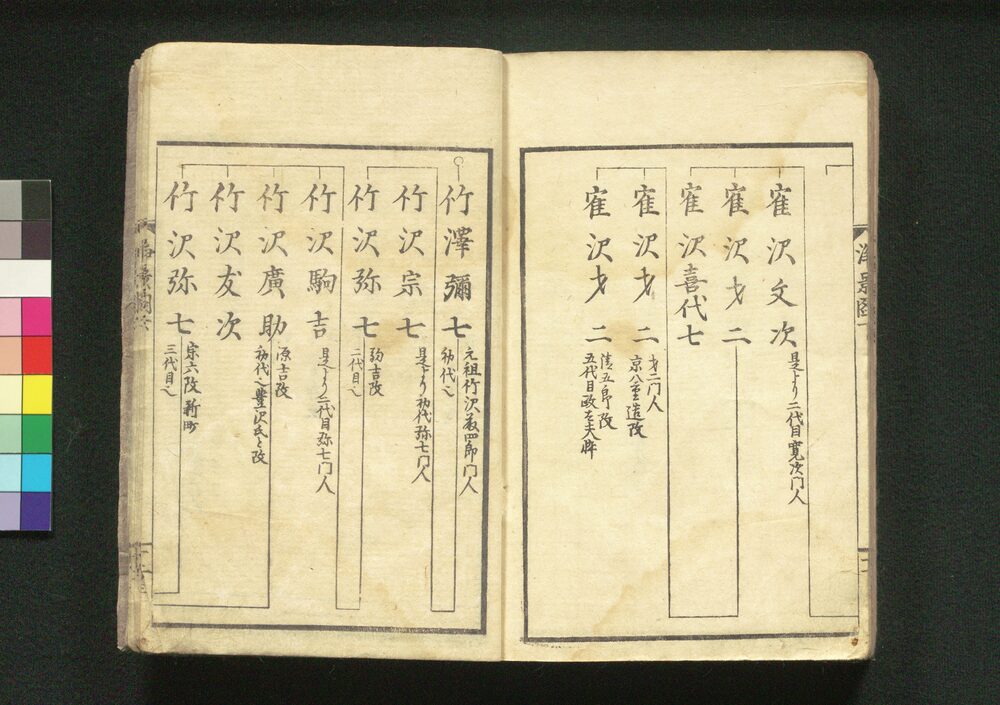 寉沢文次
是より二代目寛次門人
寉沢才二
寉沢喜代七
寉沢才二
才二門人
京八重造改
寉沢才二
清五郎改
五代目政太夫忰
竹澤彌七
元祖竹沢藤四郎門人
初代也
竹沢宗七
是より初代弥七門人
竹沢弥七
駒吉改
二代目也
竹沢駒吉
是より二代目弥七門人
竹沢廣助
源吉改
初代之豊沢氏と改
竹沢友次
竹沢弥七
宗六改 新町
三代目也